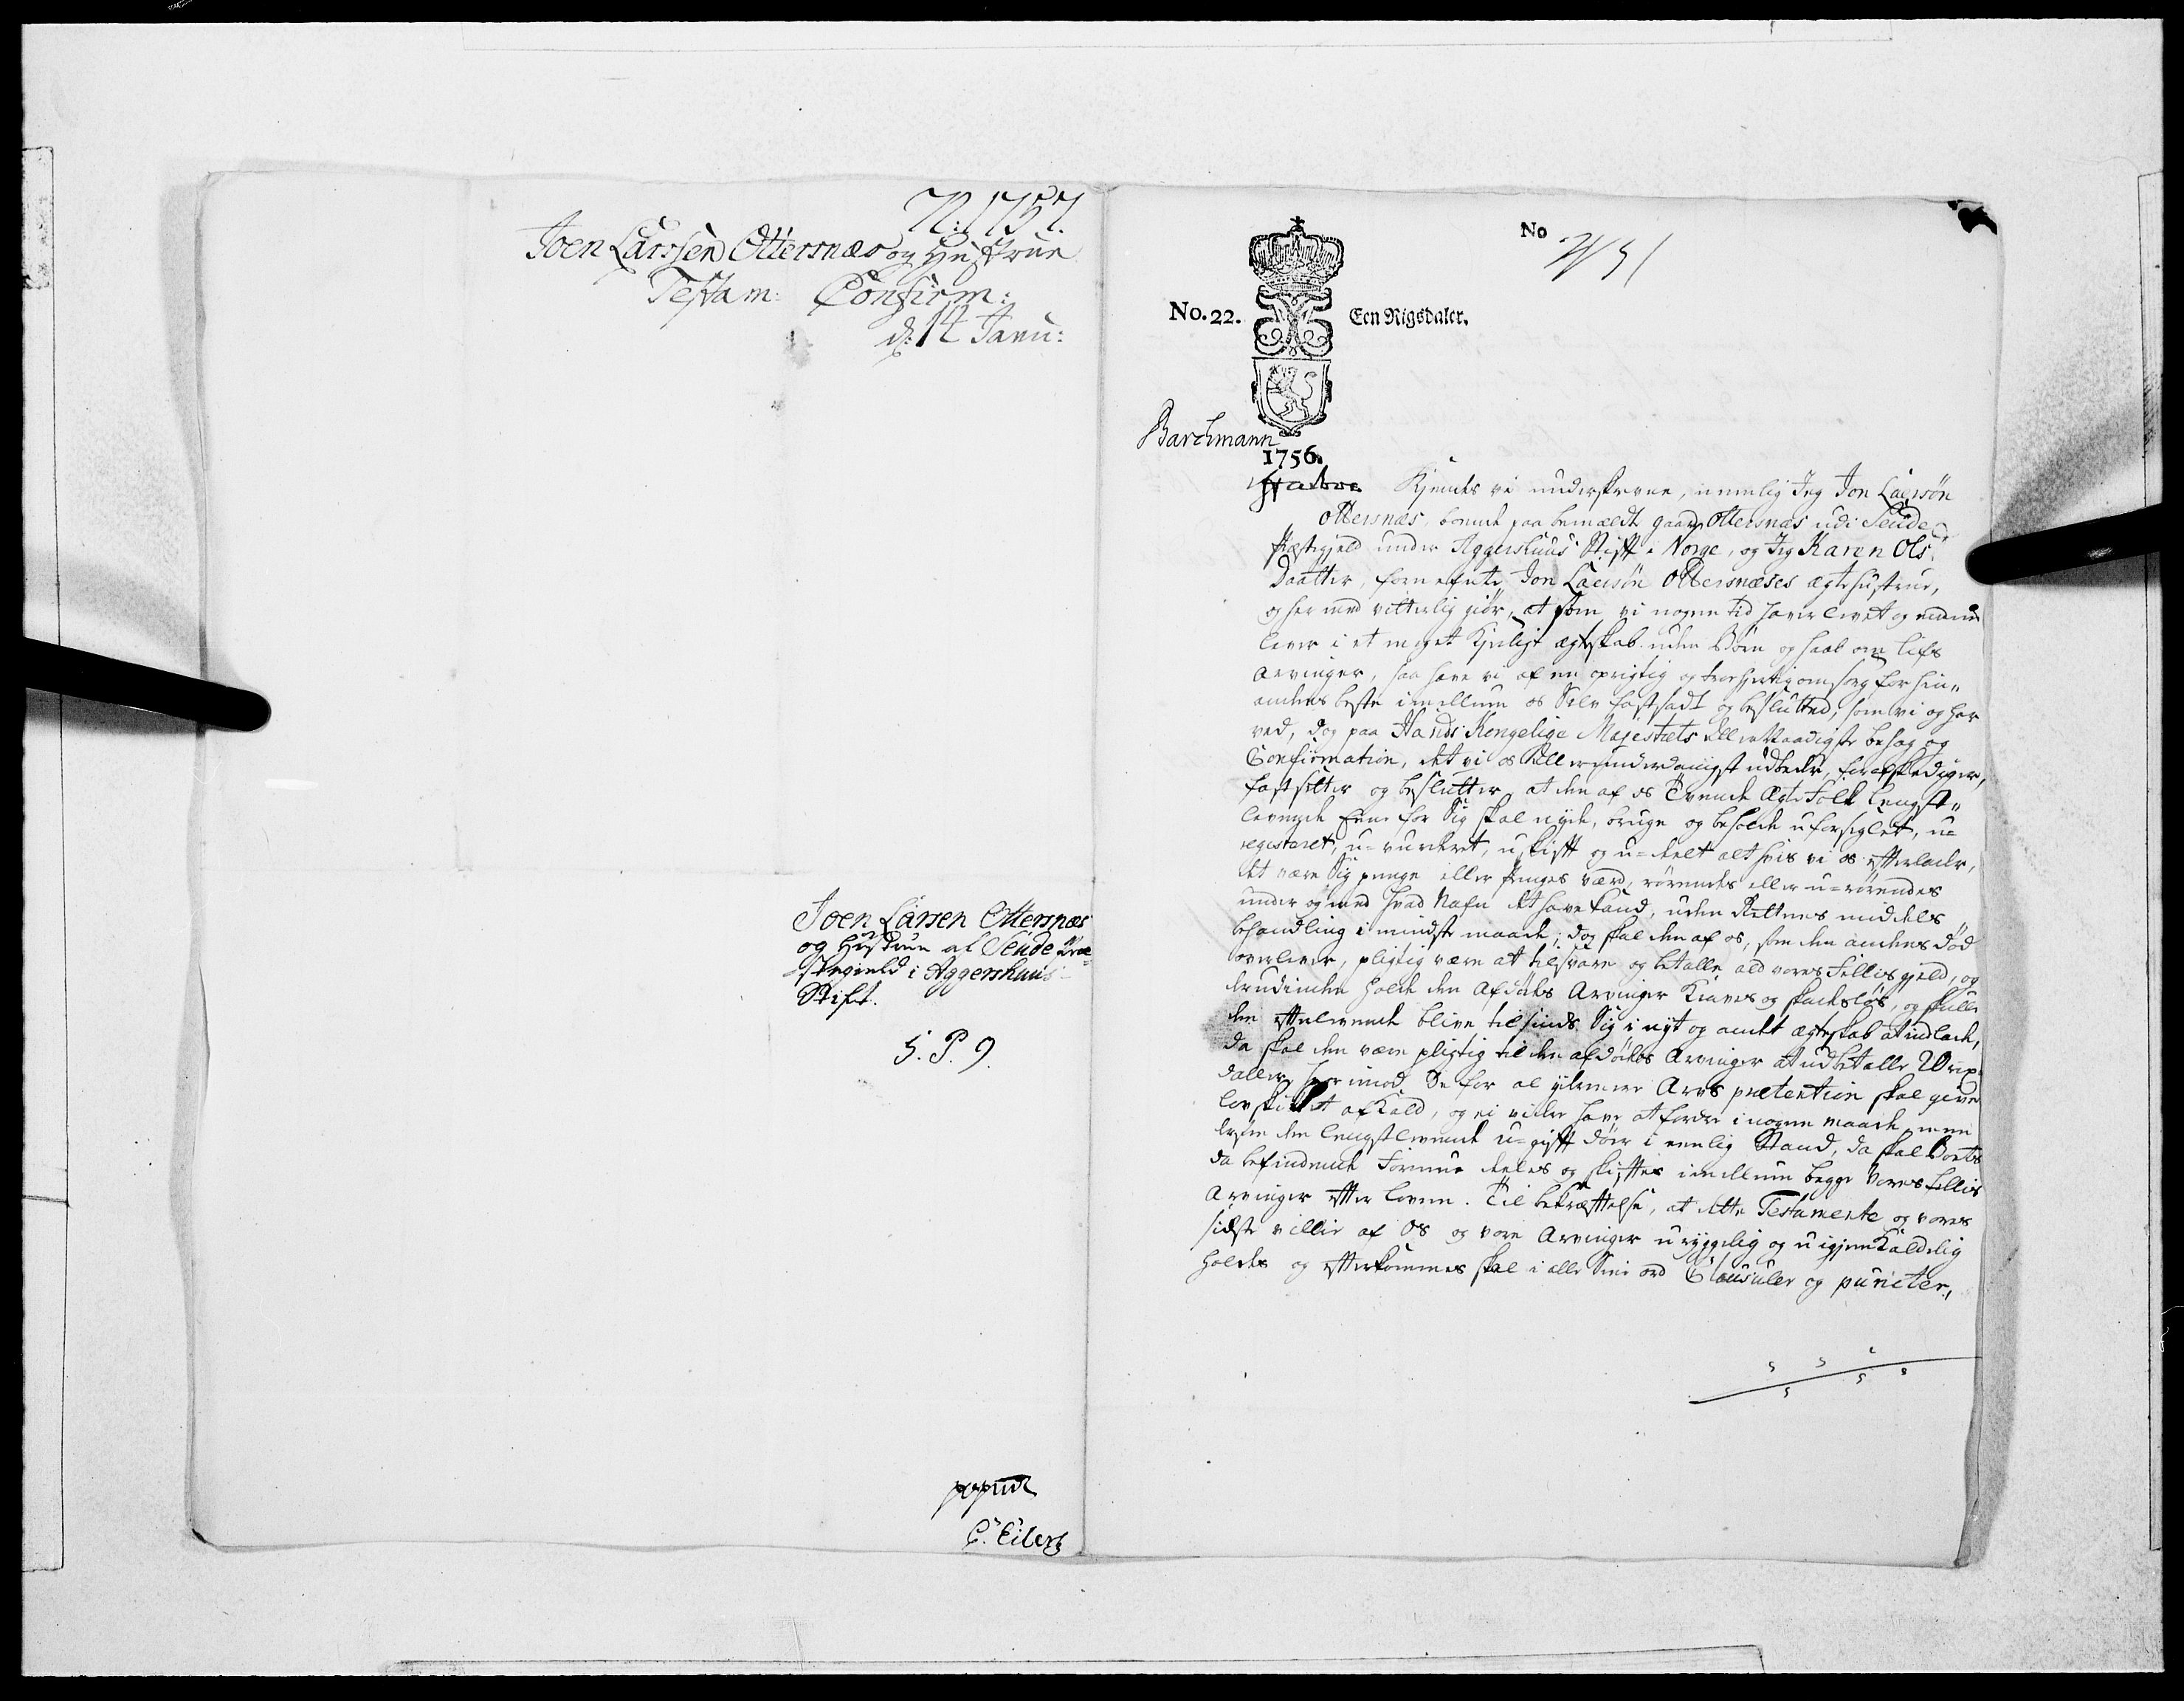 N: 1757.
Joen Larssen Ottersnæs og Hustrue
Testam: Confirm:
d: 14 Janu:
Joen Larsen Ottersnæs
og Hustrue af Seude Præ=
stegield i Aggershuus
Stift.
5. P. 9.
C. Eilers
No
No. 22.
Een Rigsdaler.
Barchmann
1756.
Kjendes vi underskrevne, nemlig Jeg Jon Laersøn
Ottersnæs, boende paa bemældte gaard Ottersnæs udi Seude
Præstegjeld under Aggershuus Stift i Norge, og Jeg Karen Ols
Daatter, fornefnte Jon Laersøn Ottersnæses ægtehustrue,
og her med vitterlig giør, at som vi nogen tid haver levet og endnu
lever i et meget Kjerligt ægteskab uden Børn og haab om lifs
Arvinger, saa have vi af en oprigtig og troehjertig omsorg for hin„
andens beste imellum os Selv fastsadt og beslutted, som vi og her
ved, dog paa Hands Kongelige Majestæts allernaadigste behag og
Confirmation, det vi os allerunderdanigst udbeder, forafskediger,
fastsetter og beslutter, at den af os Tvende Ægte Folk lengst„
levende Eene for Sig skal nyde, bruge og beholde uforseglet, u=
registeret, u=vurderet, uskift og u=deelt alt hvis vi os efterlader,
det være Sig penge eller Penges værd, rørendes eller u=rørendes
under og med hvad Nafn det have kand, uden Rettens middels
behandling i mindste maade; dog skal den af os, som den andens død
overlever, pligtig være at tilsvare og betalle ald vores Fellis gjeld, og
derudinden holde den Afdødes Arvinger Kraves og skadesløs, og skulle
den efterlevende blive tilsinds Sig i nyt og andet ægteskab at indlade,
da skal den være pligtig til den afdødes Arvinger at udbetalle 20 rix
daller, her imod De for al ydermere Arvs prætention skal give
løv skildt afkald, og ei videre have at fordre i nogen maade, men
dersom den lengstlevende u=gift døer i eenlig Stand, da skal Boets
da befindende Formue deeles og skiftes imellum begge Vores Fellis
Arvinger efter loven. Til bekræftelse, at dette Testamente og vores
sidste villie af Os og vore Arvinger uryggelig og uigjenkaldelig
holdes og efterkommes skal i alle Sine ord Clausuler og puncter,